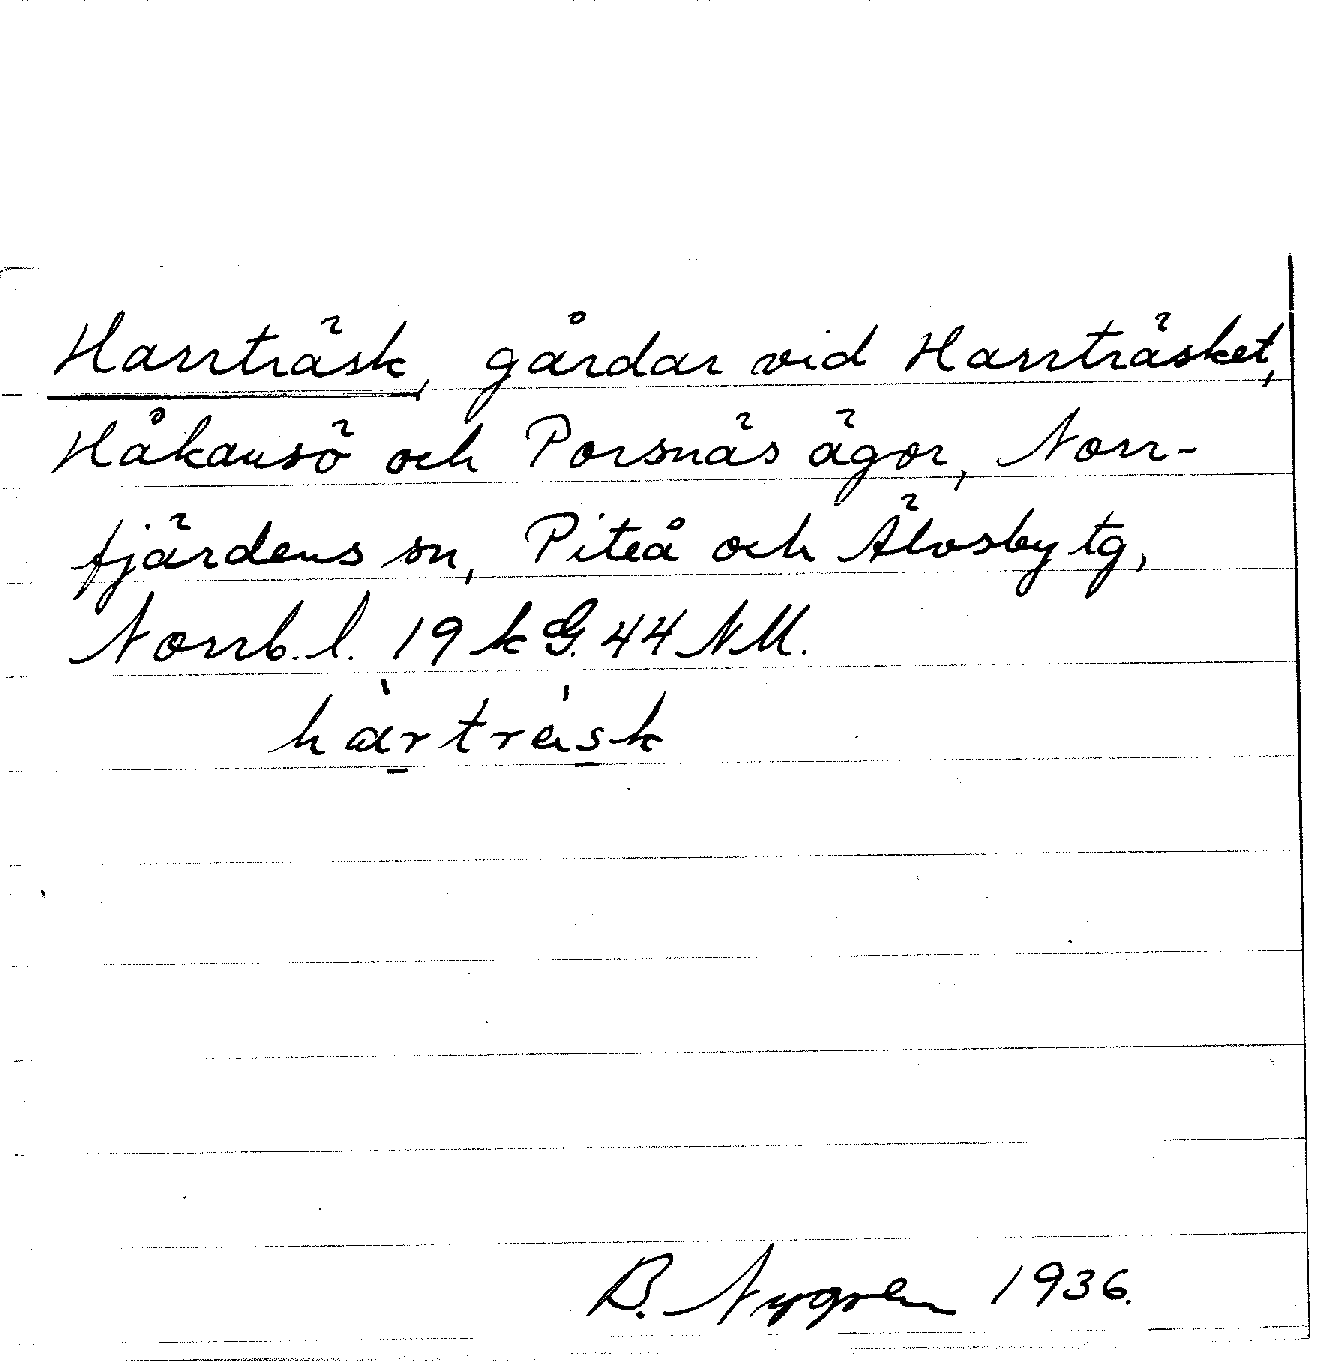 Harrträsk, gårdar vid Harrträsket,
Håkansö och Porsnäs ägor, Norr-
fjärdens sn, Piteå och Älvsby tg,
Norrb. l. 19 k G. 44 NM.
hàrträ́sk
B. Nygren 1936.